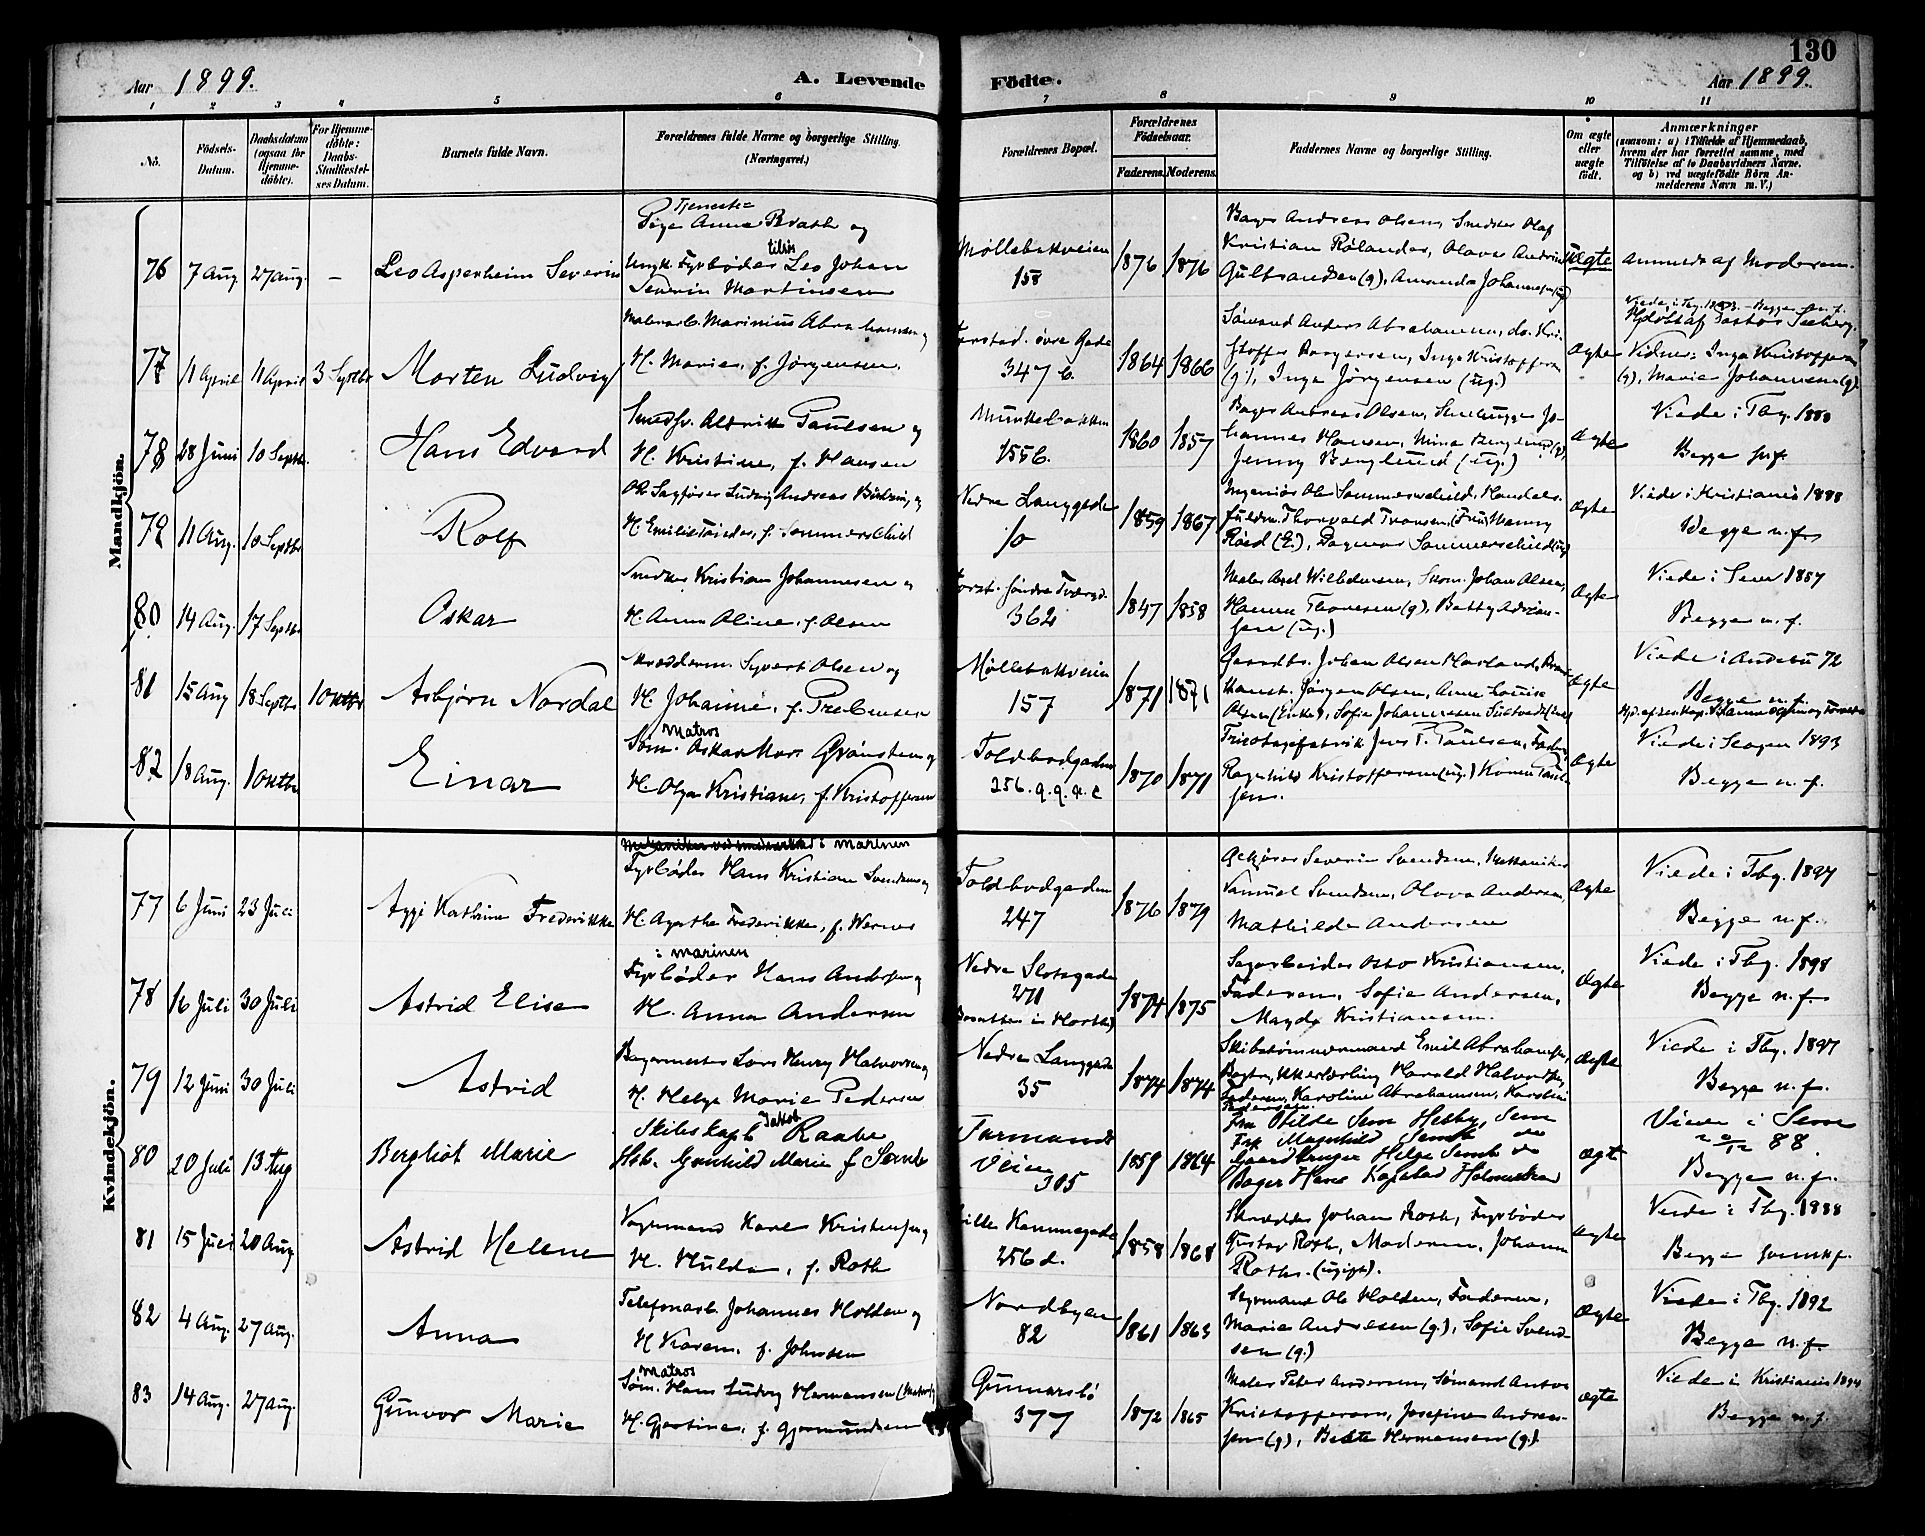 130
Aar 1899.
A. Levende Födte.
Aar 1899.
1 2 3 4 5 6 7 8 9 10 11
No.
Födsels-Datum.
Daabsdatum (ogsaa for Hjemmedöbte).
For Hjemmedöbte: Daabs-Stadfæstelses Datum.
Barnets fulde Navn.
Forældrenes fulde Navne og borgerlige Stilling. (Næringsvei.)
Forældrenes Bopæl.
Forældrenes Födselsaar.
Faderens. Moderens.
Faddernes Navne og borgerlige Stilling.
Om ægte eller uægte födt.
Anmærkninger
(saasom: a) i Tilfælde af Hjemmedaab,
hvem der har forrettet samme, med
Tilföielse af to Daabsvidners Navne.
og b) ved uægtefödte Börn Anmelderens Navn m. V.)
Mandkjön.
76 7 Aug. 27 Aug. – Leo Asperheim Severin
Tjeneste-
Pige Anna Braath og
Ungk. Fyrbøder Leo Johan
Severin Martinsen
Møllebakveien
158
1876 1876
Bager Andreas Olsen, Snedker Olaf
Kristian Rølander, Olava Andrine
Gulbrandsen (g), Amanda Johannesen (ug)
Uægte
Anmeldt af Moderen.
77 11 April 11 April 3 Septbr Morten Ludvig
Malerarb. Marinius Abrahamsen og
H. Marie, f. Jörgensen.
347 b.
1864 1866
Sömand Anders Abrahamsen, do. Kristoffer
Borgersen, Inga Kristoffersen
(g), Inga Jörgensen (ug.)
Ægte
Vidner: Inga Kristoffersen
(g), Marie Johannesen (g).
78 28 Juni 10 Septbr. Hans Edvard
Smedsv. Aldrik Paulsen og
H. Kristine, f. Hansen
155 b.
1860 1857
Bager Andreas Olsen,
Johannes Hansen, Mina Berglund (g),
Jenny Berglund (ug.)
Ægte
Viede i Tbg. 1880
Begge
79 11 Aug. 10 Septbr Rolf
Ov. Sagfører Ludvig Andreas
H. Emilie f. Sommerschild
Nedre Langgade
10
1859 1867
Ingeniør Ole Sommerschild, Handelsfuldm.
Thorvald Fransen, (Fru) Henny
Röed (E.), Dagmar Sommerschild (ug)
Ægte
Viede i Kristiania 1888
Begge n. f.
80 14 Aug. 17 Septbr Oskar
Snedker Kristian Johannesen og
H. Anna Oline, f. Olsen
362
1847 1858
Maler Axel Wilhelmsen, Skom. Johan Olsen,
Hanna Thoresen (g), Betty Adriansen
(ug.)
Ægte
Viede i Sem 1887
Begge n. f.
81 15 Aug 18 Septbr 1 Oktbr Asbjörn Nordal
Skrædderm. Syvert Olsen og
H. Johanne, f. Prebensen
Møllebakveien
157
1871 1871
Gaardbr. Johan Olsen
Jörgen Olsen, Anne Louise
Olsen (Enke), Sofie Johannesen
Ægte
Viede i Andebu 72
Begge n. f.
82 18 Aug. 1 Oktbr Einar
Matros
Söm. Oskar Mars Granstein og
H. Olga Kristiane, f. Kristoffersen
Toldbodgaden
256. q. q. a. c
1870 1871
Tricotagefabrik Jens P. Paulsen, Faderen,
Ragnhild Kristoffersen (ug.) Karen Paulsen.
Ægte
Viede i Skogn 1893
Begge n. f.
Kvindekjön.
77 6 Juni 23 Juli Aggi Kathrine Frederikke
i marinen
Fyrbøder Hans Kristian Svendsen og
H. Agathe Frederikke, f. Werner
Toldbodgaden
247
1876 1879
Severin Svendsen, Mekaniker
Samuel Svendsen, Olava Andersen,
Mathilde Andersen
Ægte
Viede i Tbg. 1897
Begge n. f.
78 16 Juli 30 Juli Astrid Elise
i marinen
Fyrbøder Hans Andersen og
H. Anna Andersen
Nedre Slotsgade
271
1874 1875
Sagarbeider Otto Kristiansen,
Faderen, Sofie Andersen,
Magda Kristiansen.
Ægte
Viede i Tbg. 1898
Begge n. f.
79 12 Juni 30 Juli Astrid
Bagermester Lars Henry Halvorsen og
H. Helga Marie Pedersen
Nedre Langgade
35
1874 1874
Skibstømmermand Emil Abrahamsen,
Harald Halvorsen,
Faderen, Karoline Abrahamsen, Karoline
Pedersen.
Ægte
Viede i Tbg. 1897
Begge n. f.
80 20 Juli 13 Aug Bergliot Marie
Skibskapt. Jakob Raabe
Hst. Gunhild Marie f Semb
Farmands
Veien
305
1859 1864
Fru Otilde Sem Hesby, Sem
Frk Magnhild Semb do
Gaardbruger Helge Semb do
Bager Hans Kapstad Holmestrand
Ægte
Viede i Sem
88.
Begge n. f.
81 15 Juli 20 Aug Astrid Helene
Vognmand Karl Kristensen og
H. Hulda, f. Roth
Lille Kammegade
256 d.
1858 1868
Skrædder Johan Roth, Fyrbøder
Gustav Roth, Moderen, Johanne
Roth. (ugift).
Ægte
Viede i Tbg. 1888
Begge
82 4 Aug. 27 Aug. Anna
Telefonarb. Johannes Holden og
H Karen, f. Johnsen
Nordbyen
82
1861 1863
Styrmand Ole Holden, Faderen,
Marie Andresen (g.), Sofie Svendsen
(g.)
Ægte
Viede i Tbg. 1892
Begge n. f.
83 14 Aug. 27 Aug. Gunvor Marie
Matros
Söm. Hans Ludvig Hermansen (Matros) og
H. Gjertine, f. Gjermundsen
Gunnarsbö
377
1872 1865
Maler Peter Andersen, Sømand Anton
Kristoffersen, Josefine Andreassen
(g), Beate Hermansen (g.)
Ægte
Viede i Kristiania 1894
Begge n. f.